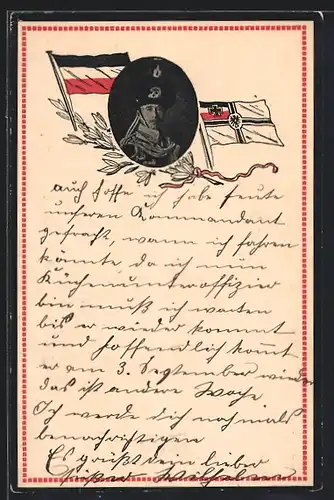 auch hoffe ich habe heute
unseren Kommandant
gefracht, wann ich fahren
könnte da ich nun
Küchenunteroffizier
bin muß ich warten
bis er wieder kommt
und hoffendlich komt
er am 3. September wieder
das ist andere Woche
Ich werde dich nochmals
benachrichtigen
Es grüßt dein lieber